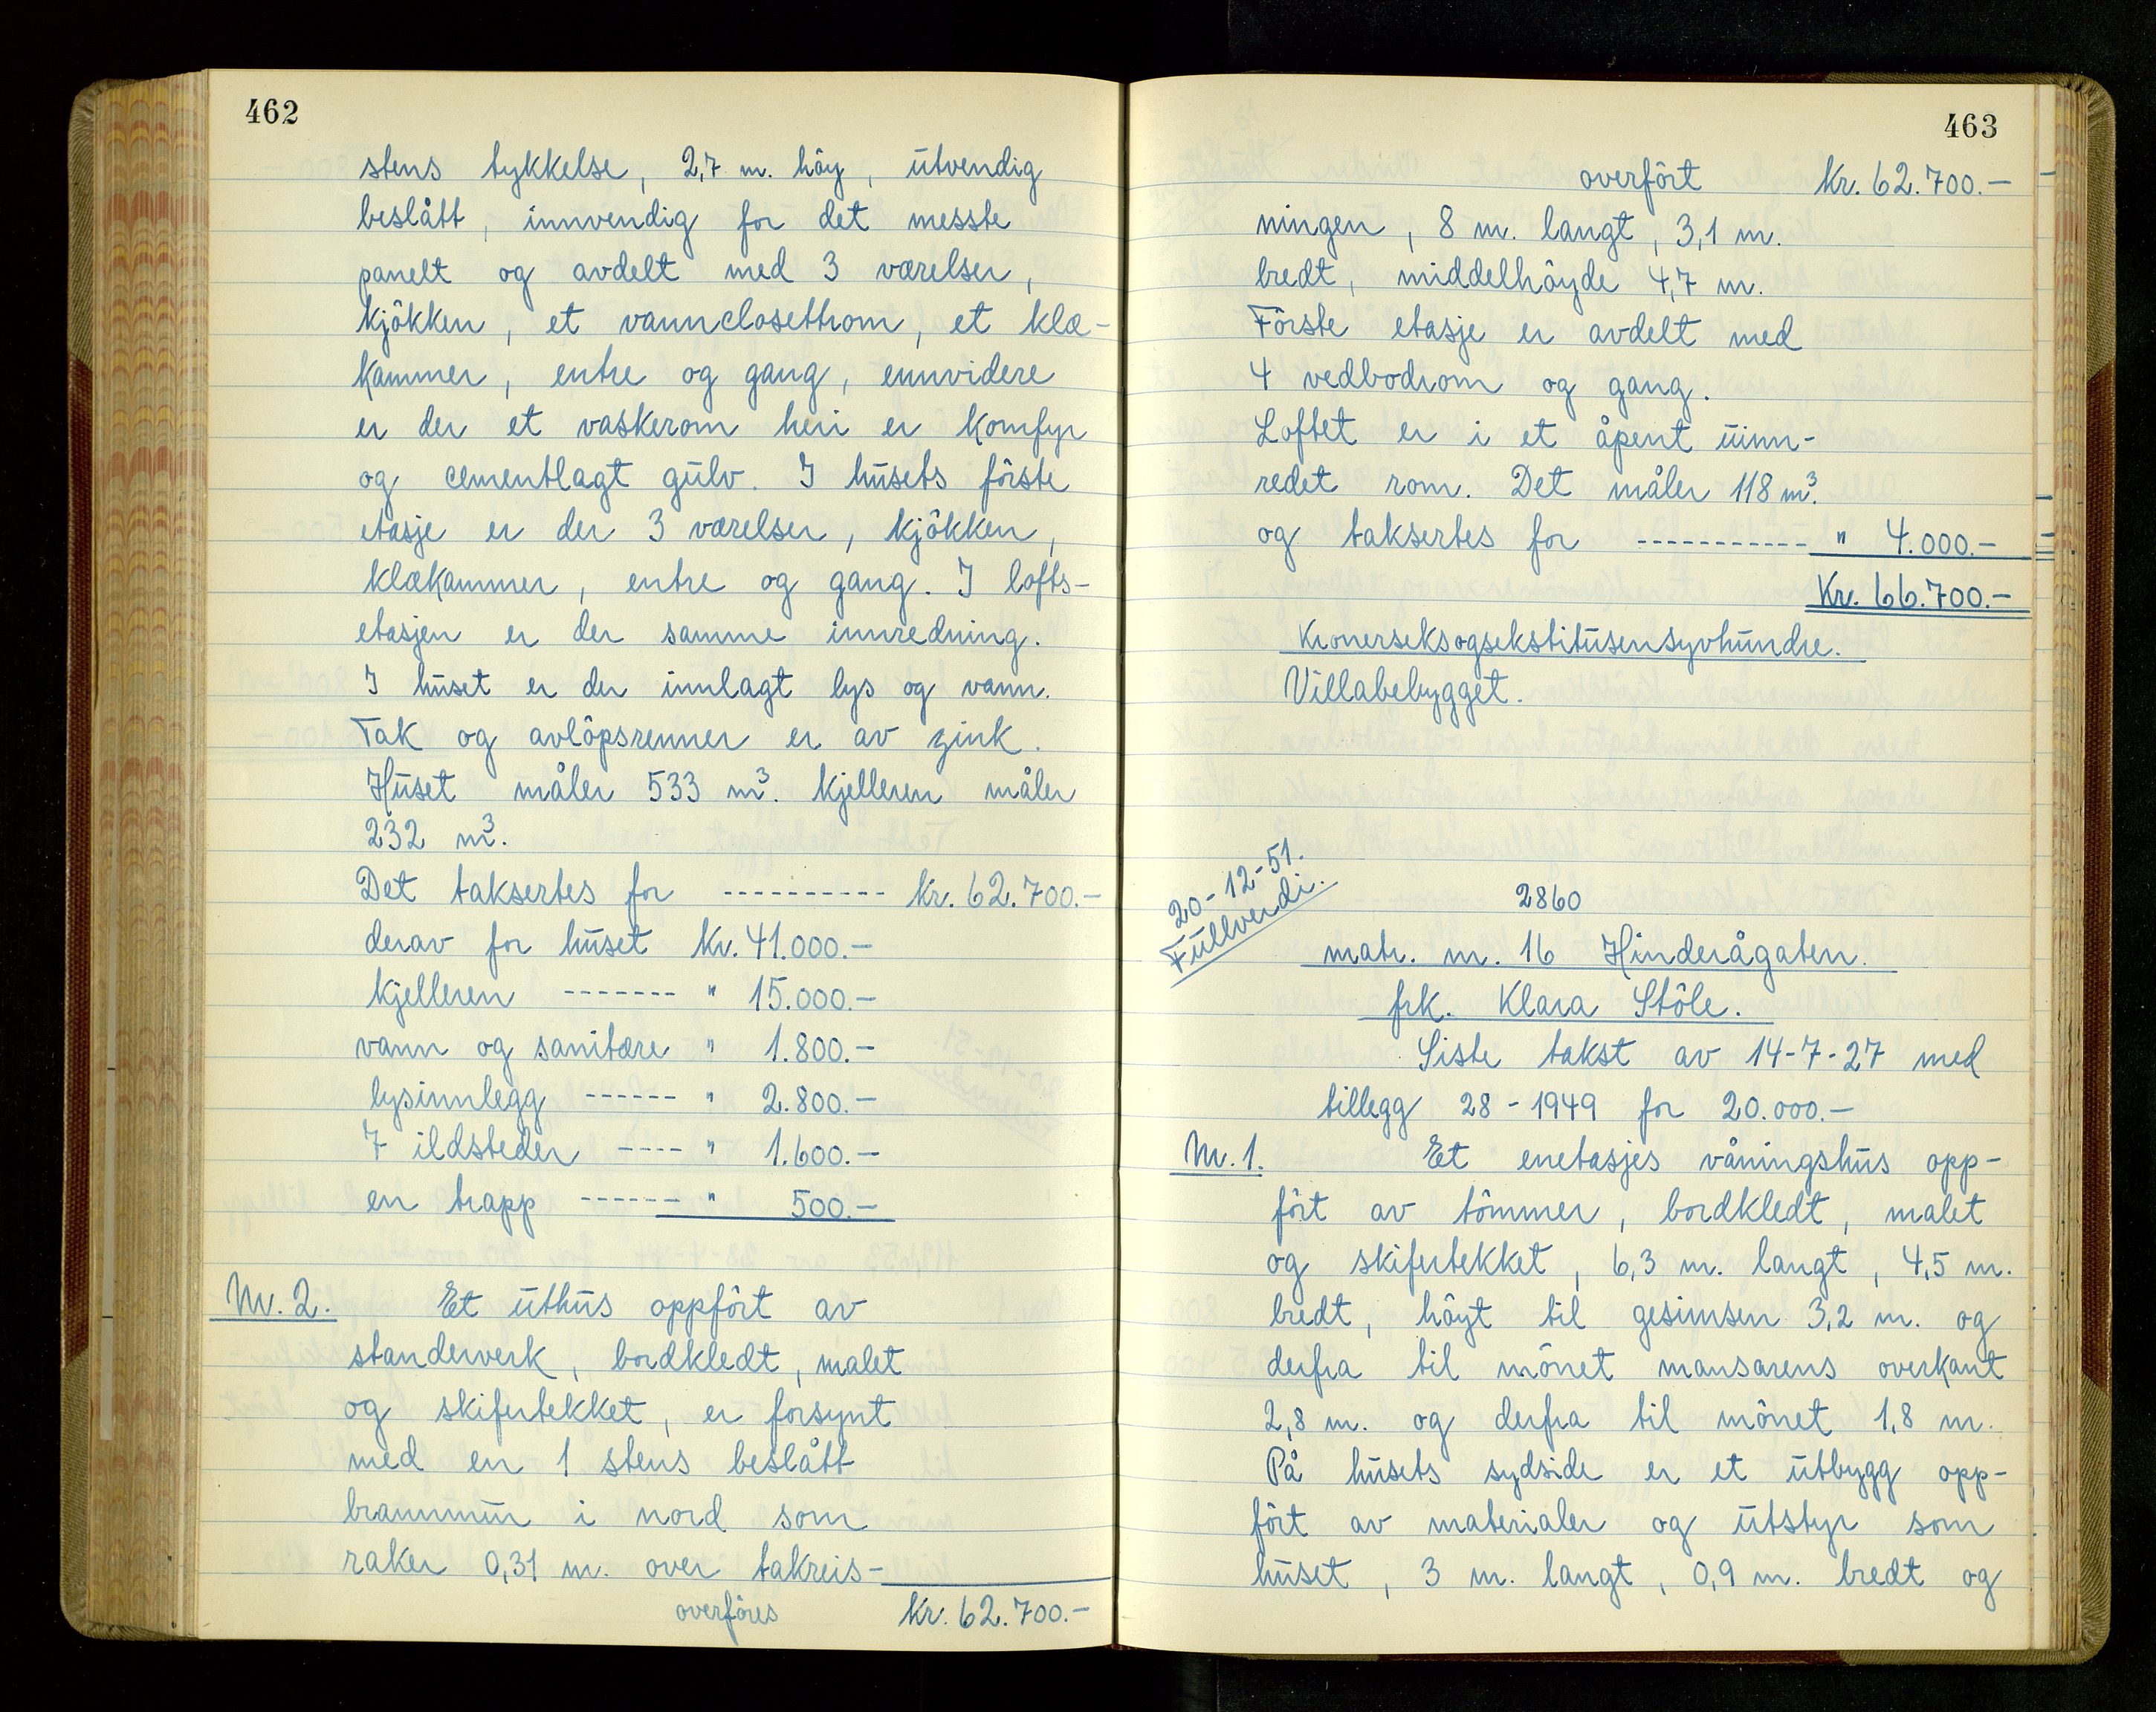 462
stens tykkelse, 2,7 m. höy, utvendig
beslått, innvendig for det messte
panelt og avdelt med 3 værelser,
kjökken, et vannclosettrom, et klæ-
kammer, entre og gang, ennvidere
er der et vaskerom heri er komfyr
og cementlagt gulv. I husets förste
etasje er der 3 værelser, kjökken,
klækammer, entre og gang. I lofts-
etasjen er der samme innredning.
I huset er der innlagt lys og vann.
Tak og avlöpsrenner er av zink.
Huset måler 533 m³. kjelleren måler
232 m³.
Det taksertes for ---------- kr. 62.700.-
derav for huset kr. 41.000.-
kjelleren ------- " 15.000.-
vann og sanitære " 1.800.-
lysinnlegg ------ " 2.800.-
7 ildsteder ---- " 1.600.-
en trapp ------ " 500.-
Nr. 2. Et uthus oppfört av
standerverk, bordkledt, malet
og skifertekket, er forsynt
med en 1 stens beslått
brannmur i nord som
raker 0,31 m. over takreis-
overföres kr. 62.700.-
463
overfört kr. 62.700.-
ningen, 8 m. langt, 3,1 m.
bredt, middelhöyde 4,7 m.
Förste etasje er avdelt med
4 vedbodrom og gang.
Loftet er i et åpent uinn-
redet rom. Det måler 118 m³.
og taksertes for ----------- " 4.000.-
Kr. 66.700.-
Kronerseksogsekstitusensyvhundre.
Villabebygget.
20-12-51.
Fullverdi.
2860
matr. nr. 16 Hinderågaten.
frk. Klara Stöle.
Siste takst av 14-7-27 med
tillegg 28-1949 for 20.000.-
Nr. 1. Et enetasjes våningshus opp-
fört av tömmer, bordkledt, malet
og skifertekket, 6,3 m. langt, 4,5 m.
bredt, höyt til gesimsen 3,2 m. og
derfra til mönet mansarens overkant
2,8 m. og derfra til mönet 1,8 m.
På husets sydside er et utbygg opp-
fört av materialer og utstyr som
huset, 3 m. langt, 0,9 m. bredt og